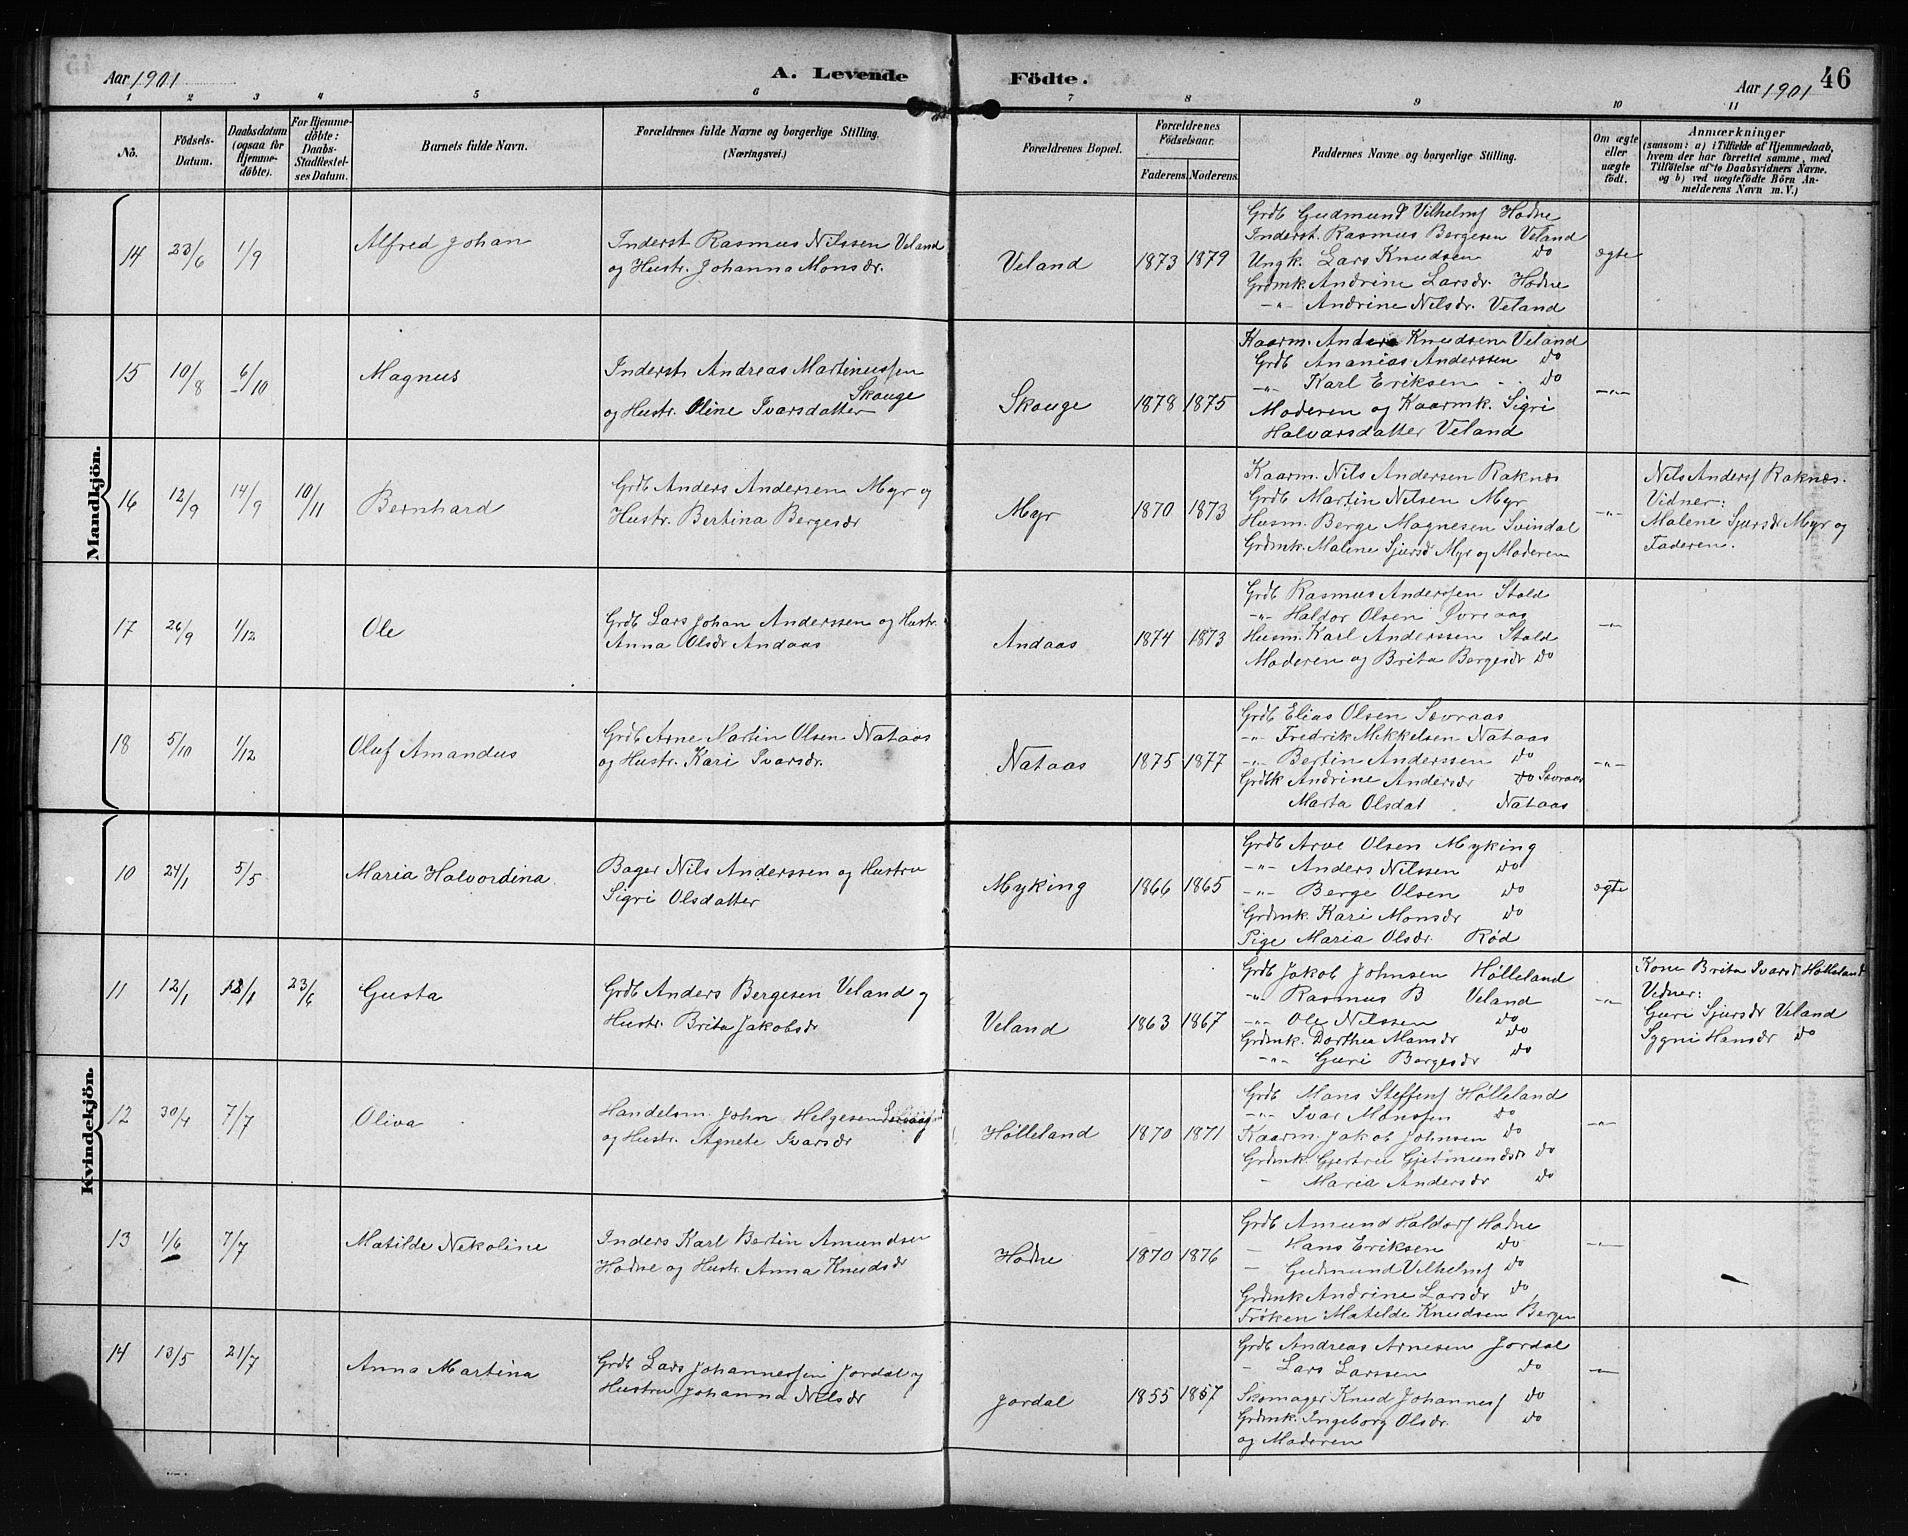 Aar 1901
A. Levende
Födte.
Aar 1901
46
1 2 3 4 5 6 7 8 9 10 11
No.
Födsels-Datum.
Daabsdatum (ogsaa for Hjemme-döbte).
For Hjemme-döbte: Daabs-Stadfæstel-ses Datum.
Barnets fulde Navn.
Forældrenes fulde Navne og borgerlige Stilling.
(Næringsvei.)
Forældrenes Bopæl.
Forældrenes Födselsaar.
Faderens. Moderens.
Faddernes Navne og borgerlige Stilling.
Om ægte eller uægte födt.
Anmærkninger
(saasom: a) i Tilfælde af Hjemmedaab,
hvem der har forrettet samme, med
Tilföielse af to Daabsvidners Navne.
og b) ved uægtefödte Börn An-
melderens Navn m. V.)
Mandkjön.
14 23/6 1/9
Alfred Johan
Inderst Rasmus Nilssen Veland
og Hustr. Johanna Monsdr.
Veland
1873 1879
Grdb Gudmund Vilhelms Hodne
Inderst. Rasmus Bergesen Veland
Ungk. Lars Knudsen do
Grdmk. Andrine Larsdr. Hodne
-"- Andrine Nilsdr. Veland
ægte
15 10/8 6/10
Magnus
Inderst Andreas Martinussen
Skauge
og Hustr. Oline Ivarsdatter
Skauge
1878 1875
Kaarm. Anders Knudsen Veland
Grdb Ananias Anderssen do
-"- Karl Eriksen do
Moderen og Kaarmk. Sigri
Halvarsdatter Veland
-"-
16 12/9 14/9 10/11
Bernhard
Grdb Anders Andersen Myr og
Hustr. Bertina Bergesdr
Myr
1870 1873
Kaarm. Nils Andersen Raknæs
Grdb Martin Nilsen Myr
Husm. Berge Magnesen Svindal
Grdmk. Malene Sjursd Myr og Moderen
-"-
Nils Anders Raknæs.
Vidner:
Malene Sjursdr Myr og
Faderen.
17 26/9 1/12
Ole
Grdb Lars Johan Anderssen og Hustr.
Anna Olsdr Andaas
Andaas
1874 1873
Grdb Rasmus Anderssen Stold
-"- Haldor Olsen
Husm. Karl Anderssen Stold
Moderen og Brita Bergesdr do
-"-
18 5/10 1/12
Oluf Amandus
Grdb Arne Martin Olsen Nataas
og Hustr. Kari Ivarsdr.
Nataas
1875 1877
Grdb Elias Olsen Sævraas
-"- Fredrik Mikkelsen Nataas
-"- Bertin Anderssen do
Grdbk Andrine Andersdr do Sævraas
Marta Olsdat Nataas
-"-
Kvindekjön.
10 24/1 5/5
Maria Halvordina
Bager Nils Anderssen og Hustru
Sigri Olsdatter
Myking
1866 1865
Grdb Arve Olsen Myking
-"- Anders Nilssen do
-"- Berge Olsen do
Grdmk. Kari Monsdr do
Pige Maria Olsdr. Rød
ægte
11 12/1 23/6
Gusta
Grdb Anders Bergesen Veland og
Hustr. Brita Jakobsdr
Veland
1863 1867
Grdb Jakob Johnsen Hølleland
-"- Rasmus B Veland
-"- Ole Nilssen do
Grdmk. Dorthea Mansdr do
-"- Guri Bergesdr do
-"-
Kone Brita Ivarsd Hølleland
Vidner:
Guri Sjursdr Veland
Sygni Hansdr do
12 30/4 7/7
Oliva
Handelsm. John Helgesen
og Hustr. Agnete Ivarsdr
Hølleland
1870 1871
Grdb Mons Steffens Hølleland
-"- Ivar Monssen do
Kaarm. Jakob Johnsen do
Grdmk. Gjertru Gjetmundsdr do
- Maria Andersdr do
-"-
13 1/6 7/7
Matilde Nekoline
Inders Karl Bertin Amundsen
Hodne og Hustr. Anna Knudsdr
Hodne
1870 1876
Grdb Amund Haldors Hodne
- Hans Eriksen do
- Gudmund Vilhelms do
Grdmk Andrine Larsdr do
Frøken Matilde Knudsen Bergen
-"-
14 13/5 21/7
Anna Martina
Grdb Lars Johannessen Jordal og
Hustru Johanna Nilsdr
Jordal
1855 1857
Grdb Andreas Arnesen Jordal
- Lars Larssen do
Skomager Knud Johannes do
Grdmk. Ingeborg Olsdr. do
og Moderen
-"-